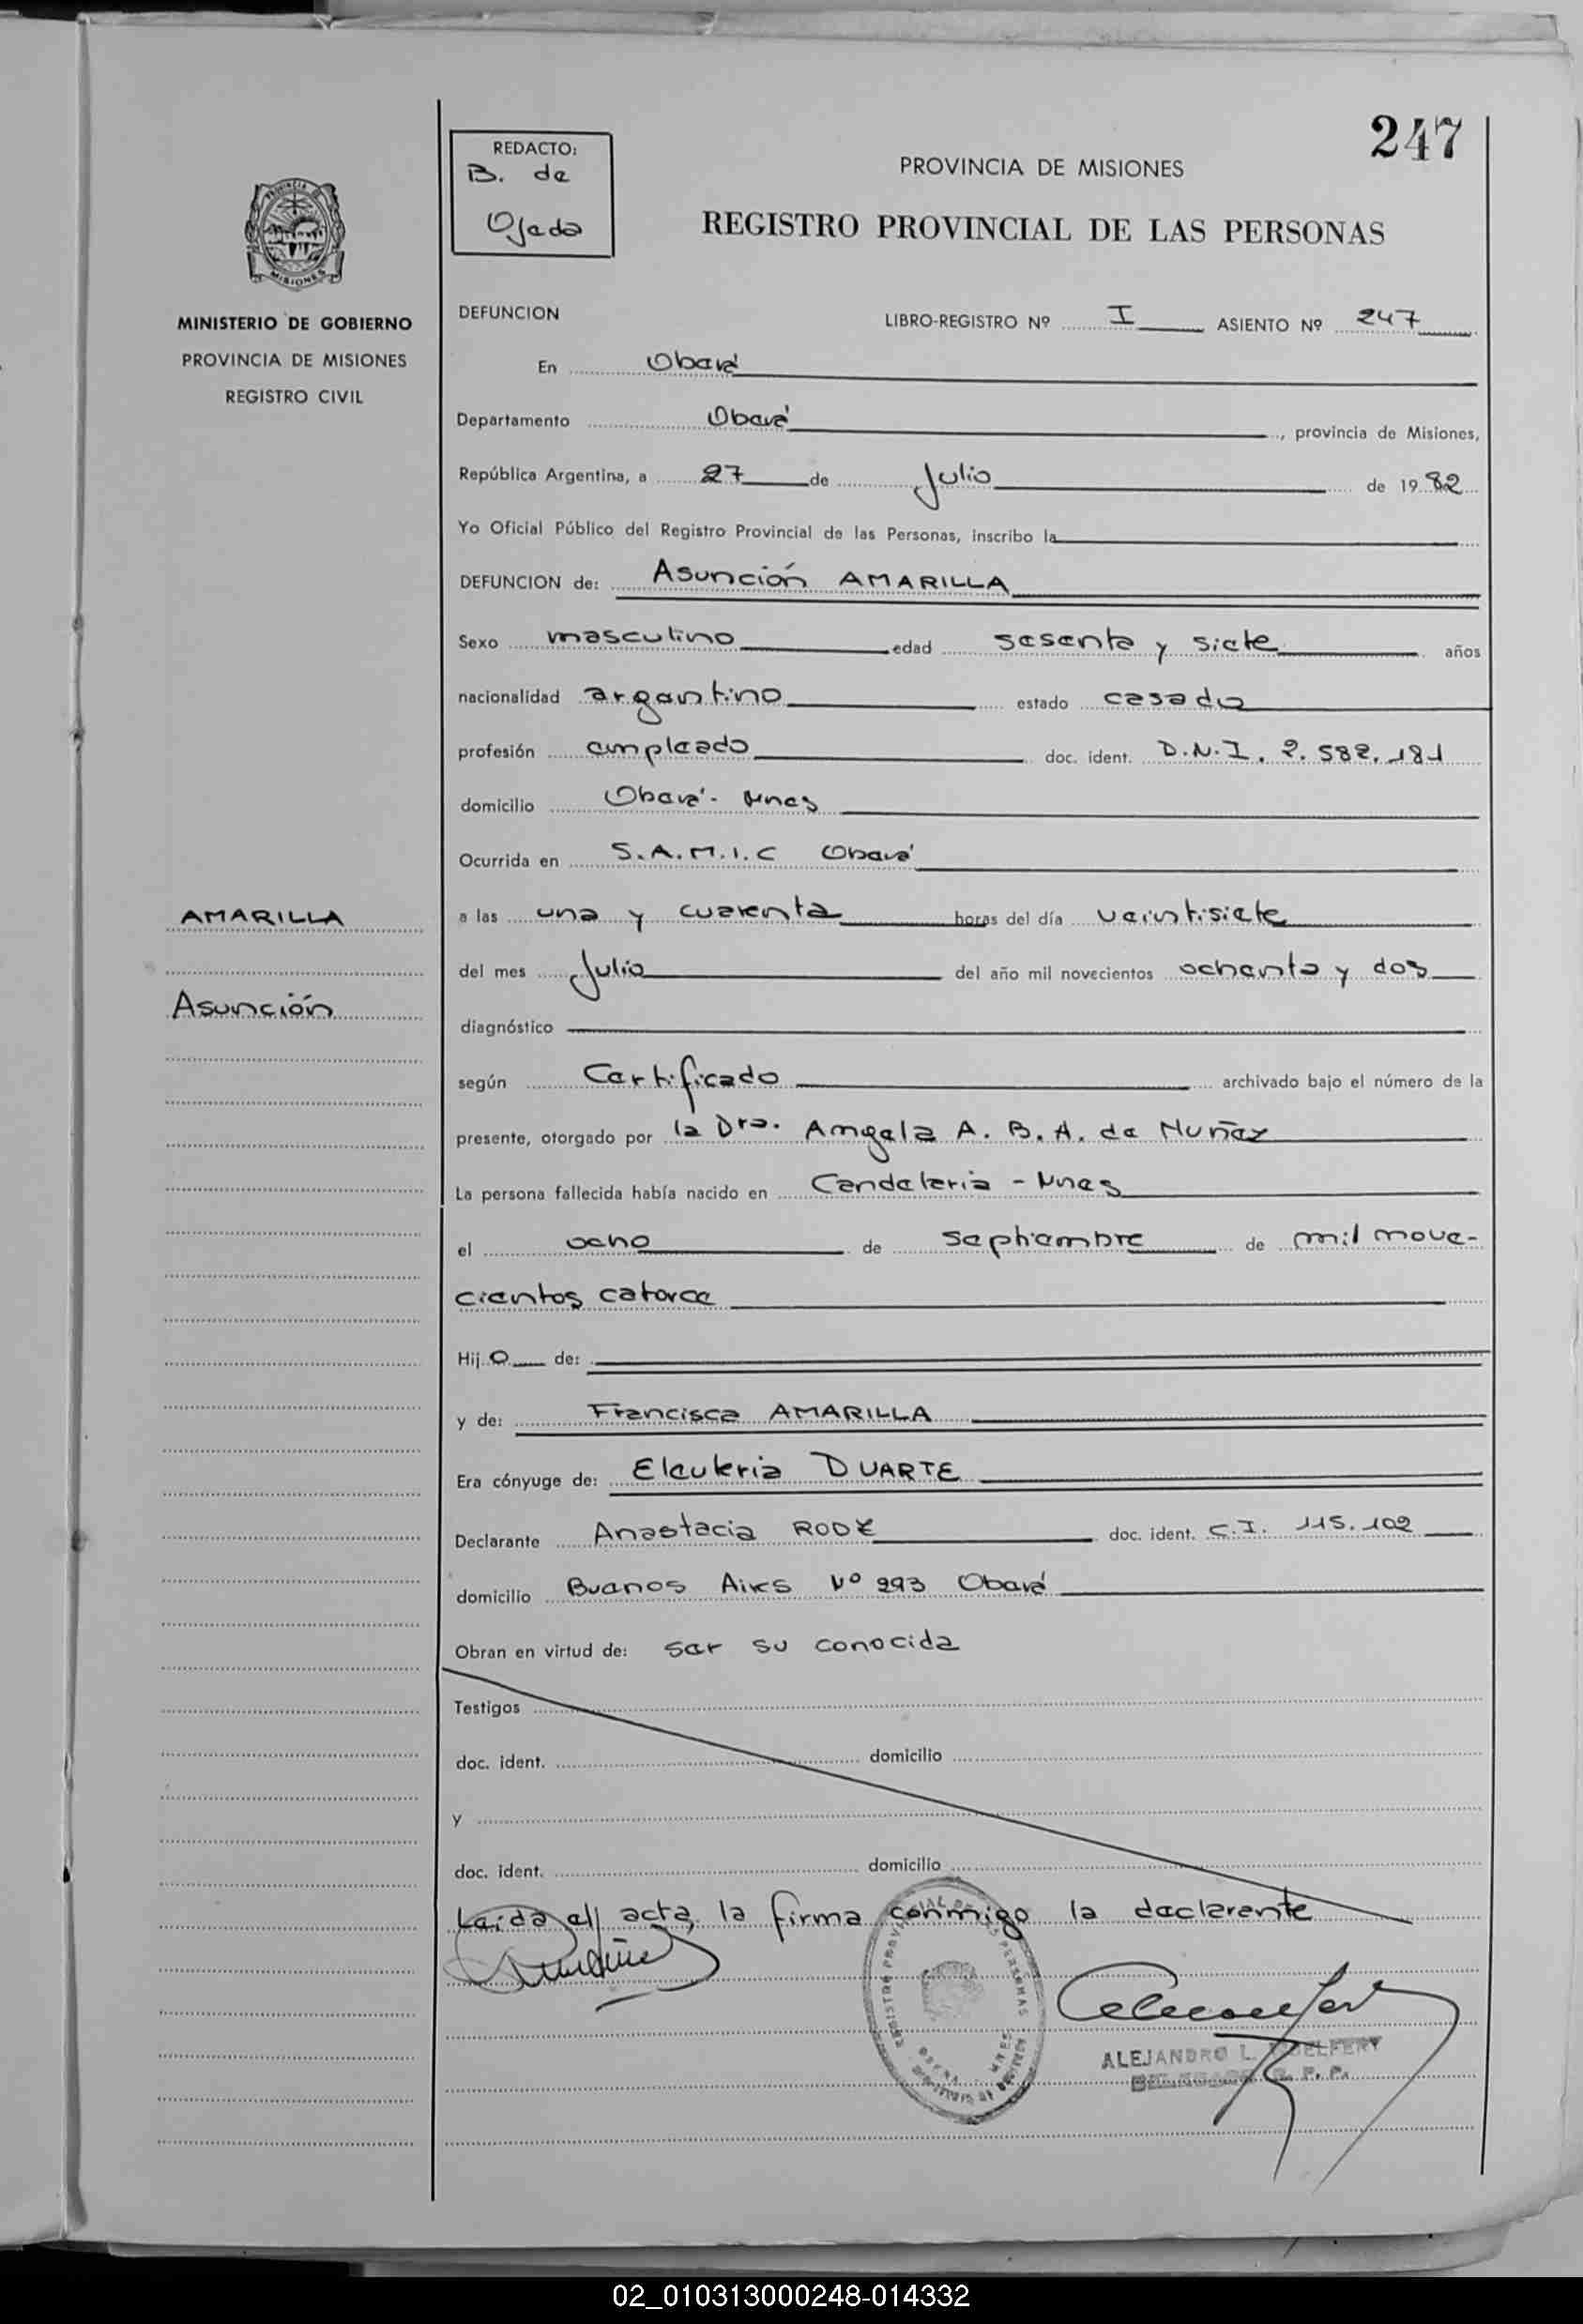 247
REDACTO:
B. de
Ojeda
PROVINCIA DE MISIONES
REGISTRO PROVINCIAL DE LAS PERSONAS
MISIONES
MINISTERIO DE GOBIERNO
PROVINCIA DE MISIONES
REGISTRO CIVIL
AMARILLA
Asunción
DEFUNCION
LIBRO-REGISTRO Nº I ASIENTO Nº 247
En Oberá
Departamento Oberá, provincia de Misiones,
República Argentina, a 27 de Julio de 1982
Yo Oficial Público del Registro Provincial de las Personas, inscribo la
DEFUNCION de: Asunción AMARILLA
Sexo masculino edad sesenta y siete años
nacionalidad argentino estado casado
profesión empleado doc. ident. D.N.I. 2.582.181
domicilio Oberá - Mnes
Ocurrida en S.A.M.I.C Oberá
a las una y cuarenta horas del día veintisiete
del mes Julio del año mil novecientos ochenta y dos
diagnóstico
según Certificado archivado bajo el número de la
presente, otorgado por la Dra. Angela A. B. A. de Nuñez
La persona fallecida había nacido en Candelaria - Mnes
el ocho de septiembre de mil nove-
cientos catorce
Hijo de:
y de: Francisca AMARILLA
Era cónyuge de: Eleuteria DUARTE
Declarante Anastacia RODE doc. ident. C.I. 115.102
domicilio Buenos Aires Nº 293 Oberá
Obran en virtud de: ser su conocida
Testigos
doc. ident. domicilio
y
doc. ident. domicilio
Leida el acta, la firma conmigo la declarante
ALEJANDRO L.
R. P. P.
02_010313000248-014332